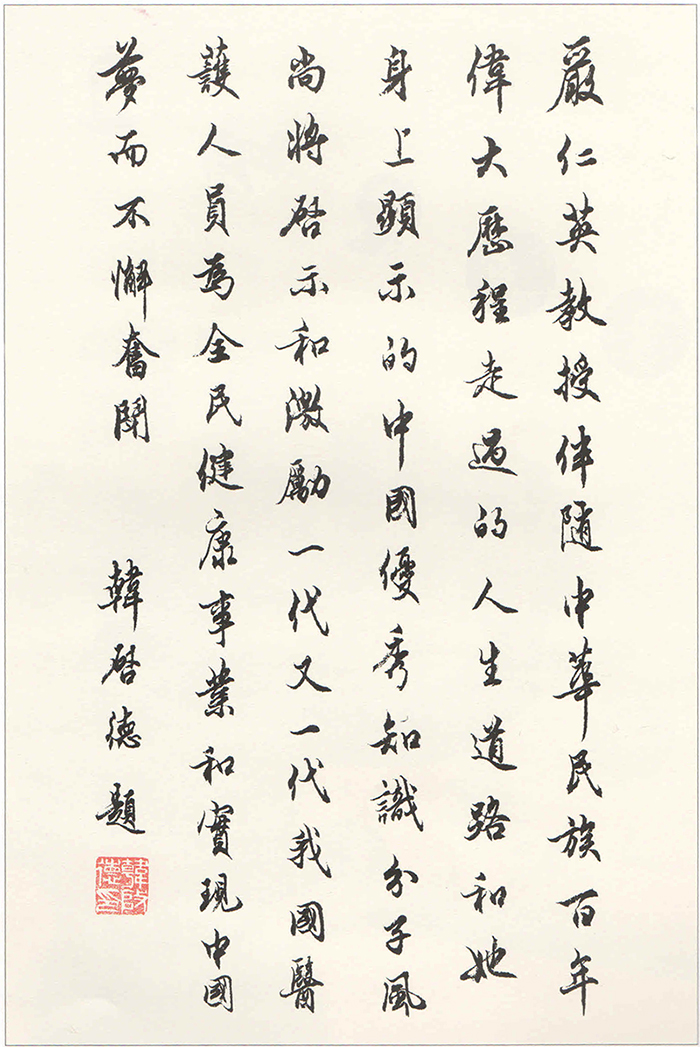 嚴仁英教授伴隨中華民族百年
偉大歷程走過的人生道路和她
身上顯示的中國優秀知識分子風
尚將啓示和激勵一代又一代我國醫
護人員爲全民健康事業和實現中國
夢而不懈奮鬥
韓啓德題
韓啟德印